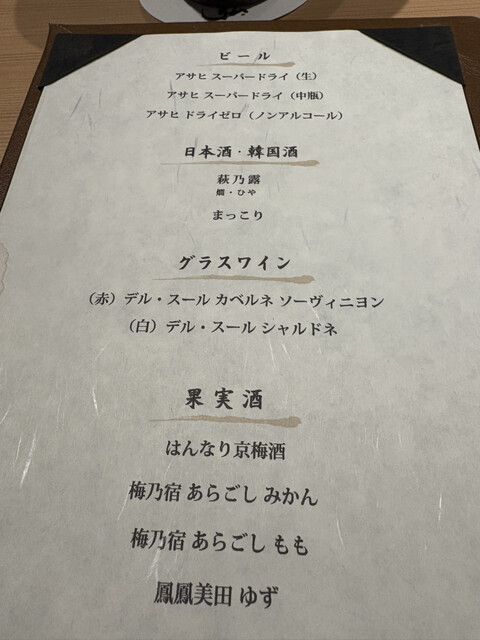 ビール
アサヒ スーパードライ（生）
アサヒ スーパードライ（中瓶）
アサヒ ドライゼロ（ノンアルコール）
日本酒・韓国酒
萩乃露
燗・ひや
まっこり
グラスワイン
（赤）デル・スール カベルネ ソーヴィニヨン
（白）デル・スール シャルドネ
果実酒
はんなり京梅酒
梅乃宿 あらごし みかん
梅乃宿 あらごし もも
鳳鳳美田 ゆず